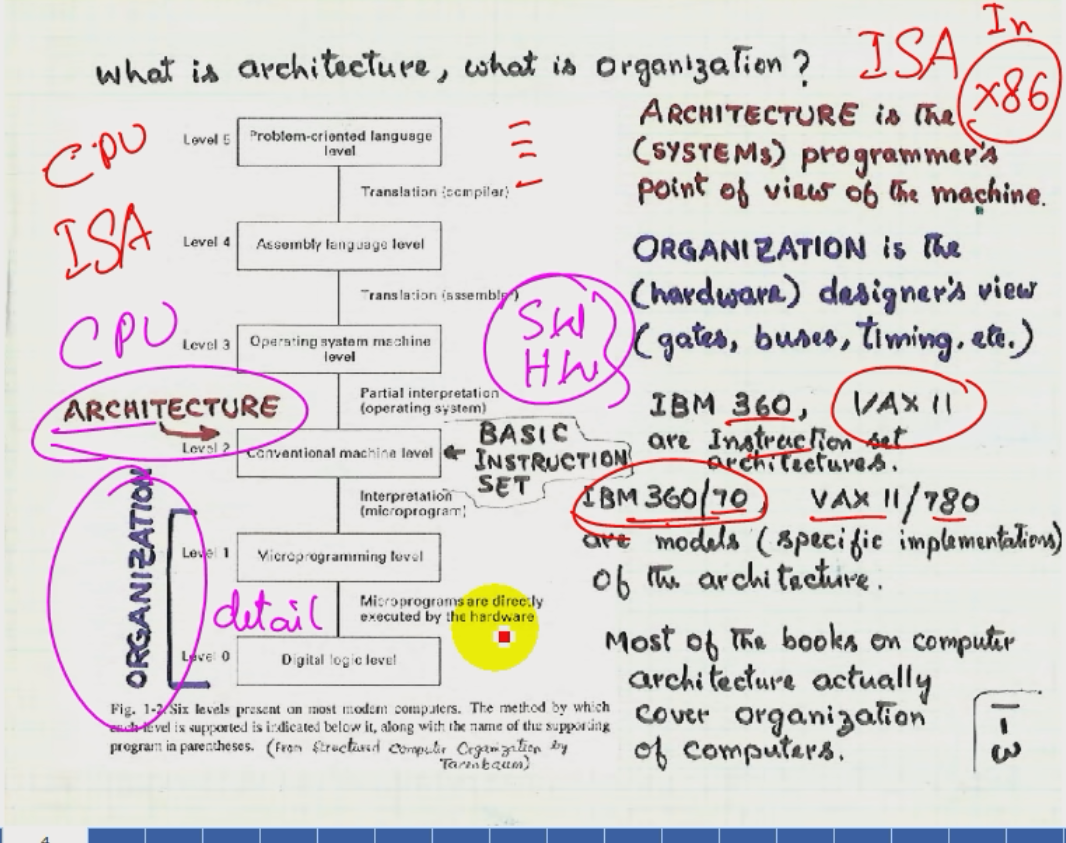 What is architecture, what is organization?
ISA
In
x86
CPU
ISA
CPU
Level 5
Problem-oriented language
level
Translation (compiler)
Level 4
Assembly language level
Translation (assembler)
Level 3
Operating system machine
level
Partial interpretation
(operating system)
SW
HW
ARCHITECTURE
Level 2
Conventional machine level
BASIC
INSTRUCTION
SET
Interpretation
(microprogram)
ORGANIZATION
Level 1
Microprogramming level
detail
Microprograms are directly
executed by the hardware
Level 0
Digital logic level
Fig. 1-2 Six levels present on most modern computers. The method by which
each level is supported is indicated below it, along with the name of the supporting
program in parentheses. (From Structured Computer Organization by
Tanenbaum)
ARCHITECTURE is the
(SYSTEMs) programmer's
point of view of the machine.
ORGANIZATION is the
(hardware) designer's view
(gates, buses, timing, etc.)
IBM 360, VAX 11
are Instruction set
architectures.
IBM 360/70, VAX 11/780
are models (specific implementations)
of the architecture.
Most of the books on computer
architecture actually
cover organization
of computers.
1-3
4